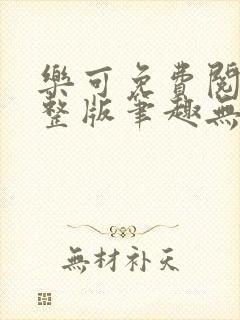 樂可免費閱
整版筆趣無
無材补天